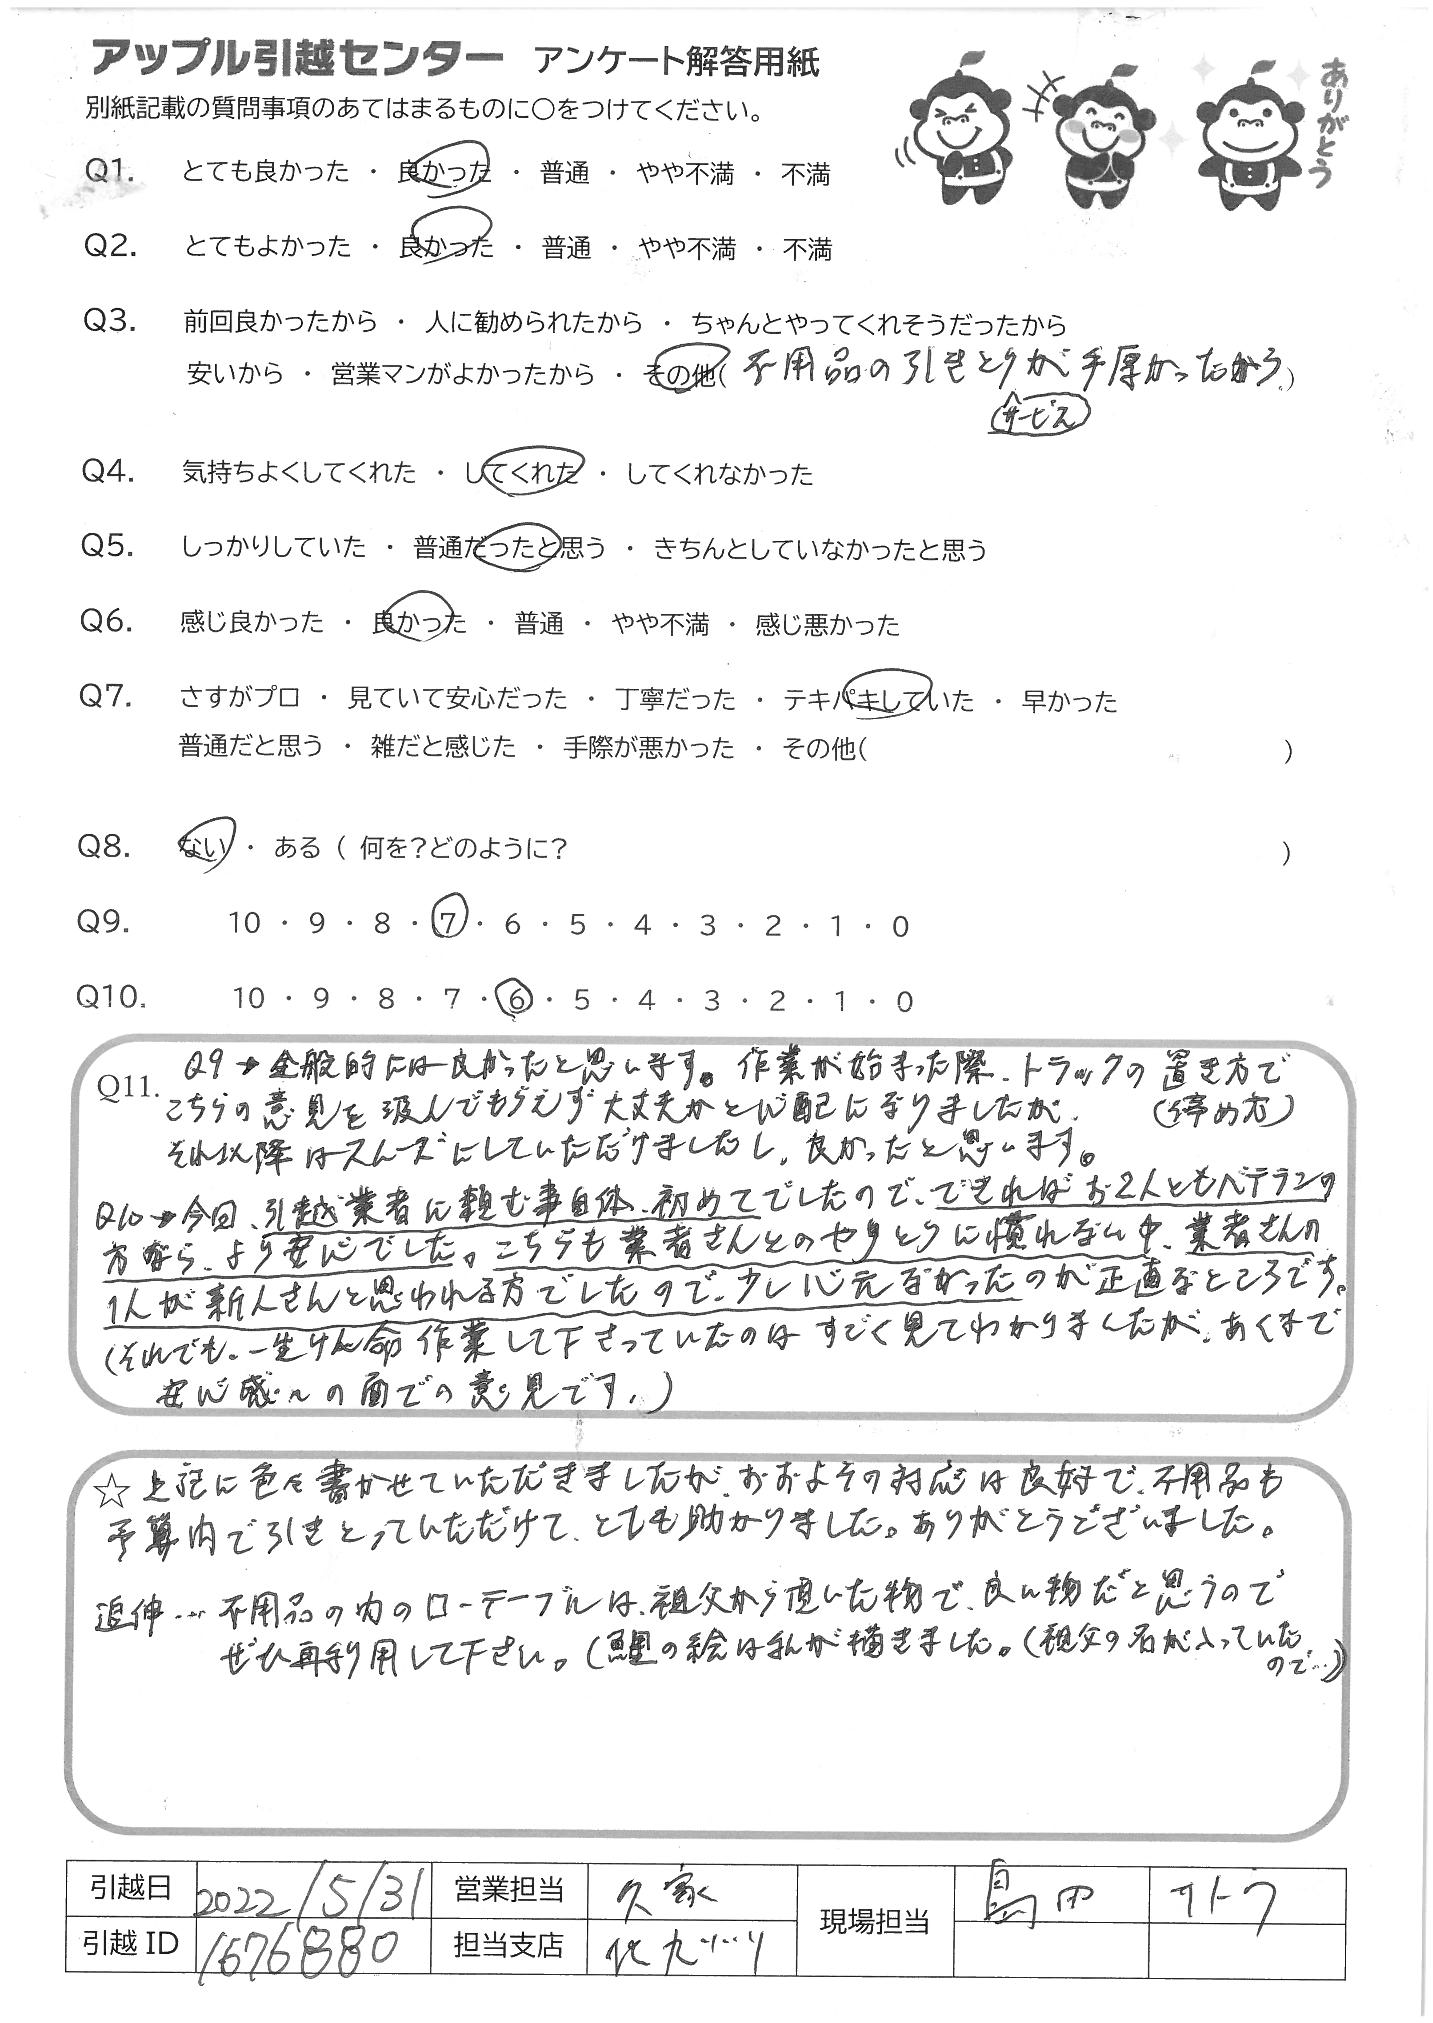 アップル引越センター アンケート解答用紙
別紙記載の質問事項のあてはまるものに○をつけてください。
ありがとう
Q1. とても良かった ・ 良かった ・ 普通 ・ やや不満 ・ 不満
Q2. とてもよかった ・ 良かった ・ 普通 ・ やや不満 ・ 不満
Q3. 前回良かったから ・ 人に勧められたから ・ ちゃんとやってくれそうだったから
安いから ・ 営業マンがよかったから ・ その他( 不用品の引きとりが手厚かったから )
サービス
Q4. 気持ちよくしてくれた ・ してくれた ・ してくれなかった
Q5. しっかりしていた ・ 普通だったと思う ・ きちんとしていなかったと思う
Q6. 感じ良かった ・ 良かった ・ 普通 ・ やや不満 ・ 感じ悪かった
Q7. さすがプロ ・ 見ていて安心だった ・ 丁寧だった ・ テキパキしていた ・ 早かった
普通だと思う ・ 雑だと感じた ・ 手際が悪かった ・ その他( )
Q8. ない ・ ある ( 何を?どのように? )
Q9. 10 ・ 9 ・ 8 ・ 7 ・ 6 ・ 5 ・ 4 ・ 3 ・ 2 ・ 1 ・ 0
Q10. 10 ・ 9 ・ 8 ・ 7 ・ 6 ・ 5 ・ 4 ・ 3 ・ 2 ・ 1 ・ 0
Q11. Q9→全般的には良かったと思います。作業が始まった際、トラックの置き方で
こちらの意見を汲んでもらえず大丈夫かと心配になりましたが、 (停め方)
それ以降はスムーズにしていただけましたし、良かったと思います。
Q10→今回、引越業者に頼む事自体、初めてでしたので、できればお2人ともベテランの
方なら、より安心でした。こちらも業者さんとのやりとりに慣れない中、業者さんの
1人が新人さんと思われる方でしたので、少し心元なかったのが正直なところです。
(それでも、一生けん命作業して下さっていたのはすごく見てわかりましたが、あくまで
安心感への面での意見です。)
☆ 上記に色々書かせていただきましたが、おおよその対応は良好で、不用品も
予算内で引きとっていただけて、とても助かりました。ありがとうございました。
追伸… 不用品の内のローテーブルは、祖父から頂いた物で、良い物だと思うので
ぜひ再利用して下さい。(鯉の絵は私が描きました。(祖父の名が入っていた
ので…))
引越日 2022/5/31 営業担当 久家 現場担当 島田 サトウ
引越ID 1676880 担当支店